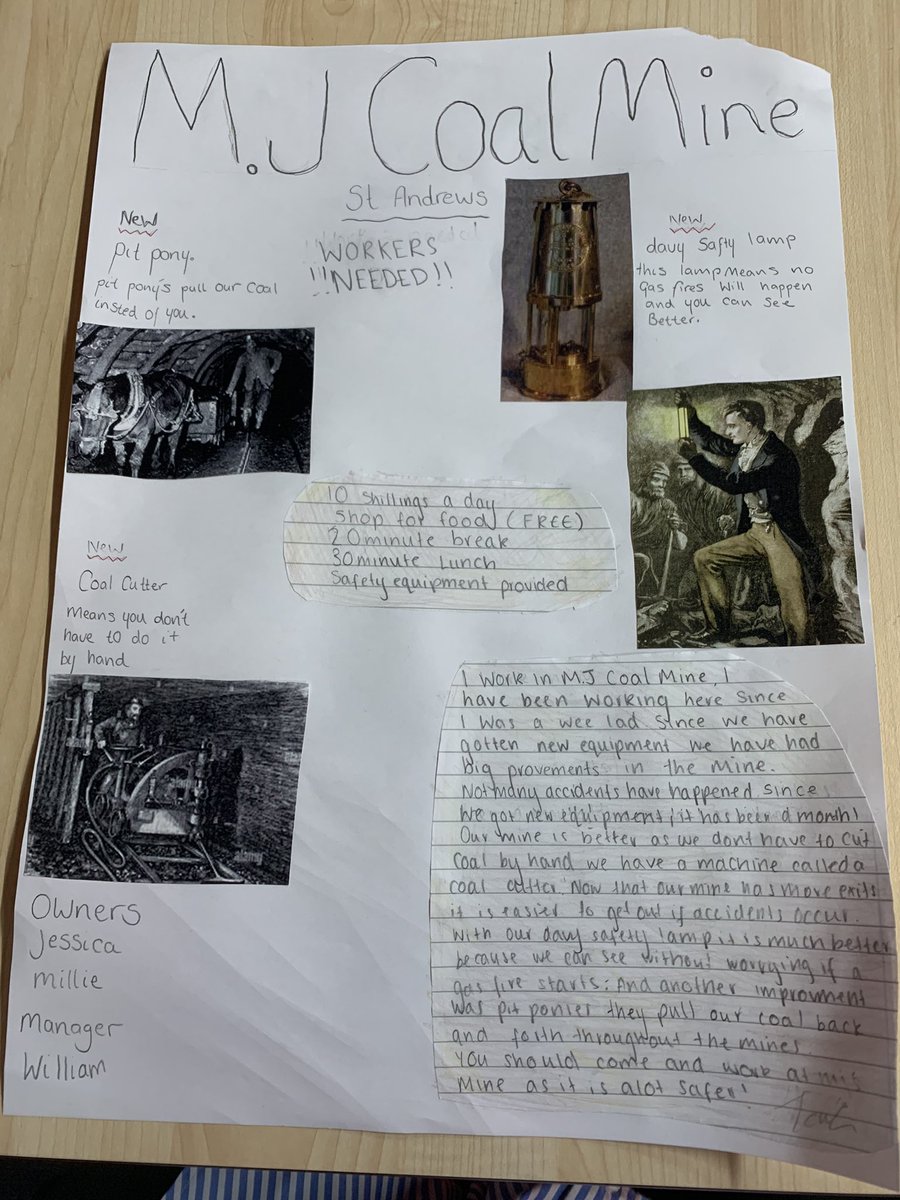 M.J Coal Mine
St Andrews
WORKERS
!!NEEDED!!
New
Pit pony.
Pit pony's pull our coal
insted of you.
New
davy Safty lamp
this lamp Means no
Gas fires Will happen
and you can see
Better.
10 Shillings a day
Shop for food (FREE)
20 minute break
30 minute Lunch
Safety equipment provided
New
Coal Cutter
Means you don't
have to do it
by hand
I Work in MJ Coal Mine, I
have been working here since
I was a wee lad. Since we have
gotten new equipment we have had
big provements in the Mine.
Not many accidents have happened since
we got new equipment, it has been a month!
Our mine is better as we dont have to cut
Coal by hand we have a machine called a
coal cutter. Now that our mine has more exits
it is easier to get out if accidents occur.
With our davy safety lamp it is much better
because we can see without worrying if a
gas fire starts. And another improvment
was pit ponies they pull our coal back
and forth throughout the mines.
You should come and work at
Mine as it is alot safer!
Owners
Jessica
Millie
Manager
William